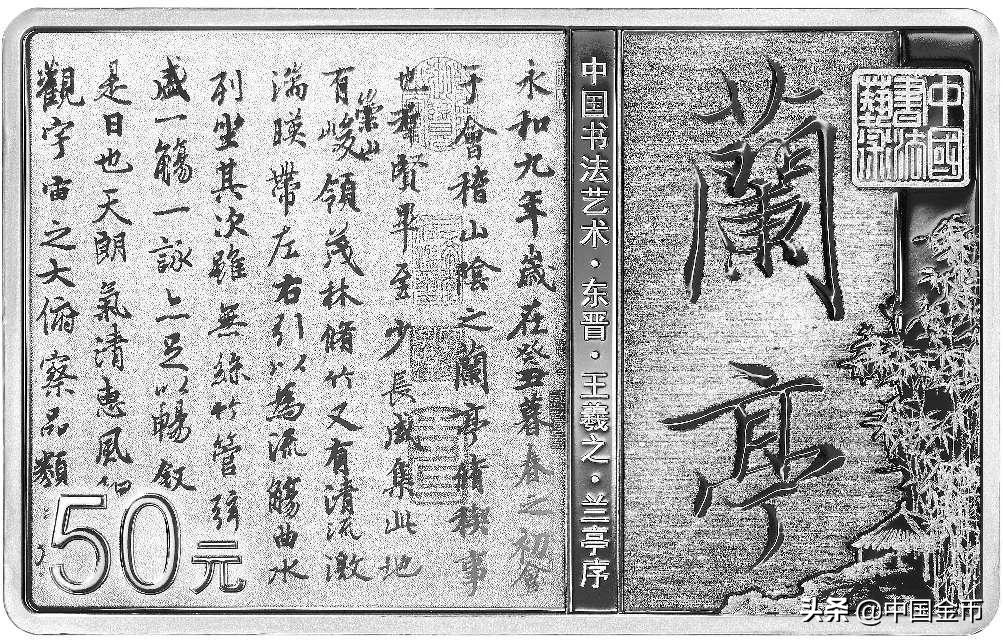 中國
書法
藝術
蘭亭
中国书法艺术·东晋·王羲之·兰亭序
永和九年歲在癸丑暮春之初會
于會稽山陰之蘭亭脩稧事
也羣賢畢至少長咸集此地
有崇山峻領茂林脩竹又有清流激
湍暎帶左右引以為流觴曲水
列坐其次雖無絲竹管弦
盛一觴一詠亦足以暢叙
是日也天朗氣清惠風和
觀宇宙之大俯察品類
50元
头条 @中国金币